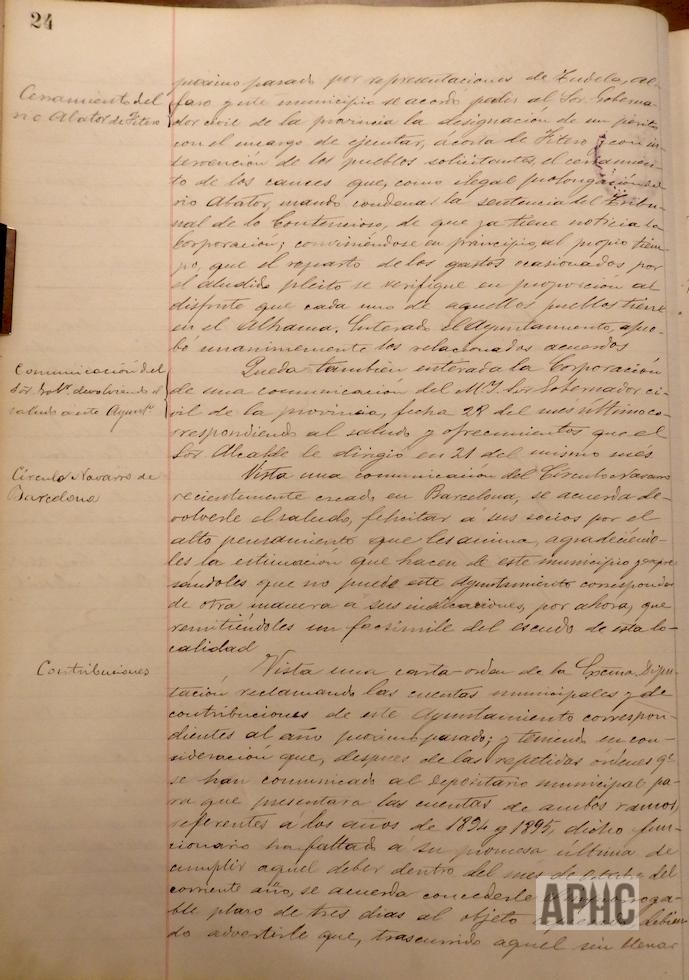 24
Cerramiento del
rio Abator de Fitero
próximo pasado por representaciones de Tudela, Al-
faro y este municipio se acordó pedir al Sor. Goberna-
dor civil de la provincia la designación de un perito
con el encargo de ejecutar, á costa de Fitero y con in-
tervención de los pueblos solicitantes, el cerramien-
to de los cauces que, como ilegal prolongación del
rio Abator, mandó condenar la sentencia del Tribu-
nal de lo Contencioso, de que ya tiene noticia la
Corporación; conviniéndose en principio, al propio tiem-
po, que el reparto de los gastos ocasionados por
el aludido pleito se verifique en proporción al
disfrute que cada uno de aquellos pueblos tiene
en el Alhama. Enterado el Ayuntamiento, apro-
bó unanimemente los relacionados acuerdos
Comunicación del
Sor. Gobr. devolviendo el
saludo a este Ayunto.
Queda también enterada la Corporación
de una comunicación del M. I. Sor Gobernador ci-
vil de la provincia, fecha 28 del mes último co-
rrespondiendo al saludo y ofrecimientos que el
Sor. Alcalde le dirigió en 21 del mismo mes.
Círculo Navarro de
Barcelona
Vista una comunicación del Círculo Navarro
recientemente creado en Barcelona, se acuerda de-
volverle el saludo, felicitar á sus socios por el
alto pensamiento que les anima, agradeciéndo-
les la estimación que hacen de este municipio y expre-
sandoles que no puede este Ayuntamiento corresponder
de otra manera a sus indicaciones, por ahora, que
remitiéndoles un facsimile del escudo de esta lo-
calidad
Contribuciones
Vista una carta-orden de la Excma. Dipu-
tación reclamando las cuentas municipales y de
contribuciones de este Ayuntamiento correspon-
dientes al año próximo pasado; y teniendo en con-
sideración que, despues de las repetidas órdenes qe.
se han comunicado al Depositario municipal pa-
ra que presentara las cuentas de ambos ramos,
referentes á los años de 1894 y 1895, dicho fun-
cionario ha faltado a su promesa última de
cumplir aquel deber dentro del mes de del
corriente año, se acuerda concederle el improrroga-
ble plazo de tres dias al objeto debien-
do advertirle que, trascurrido aquel sin llenar
APHC